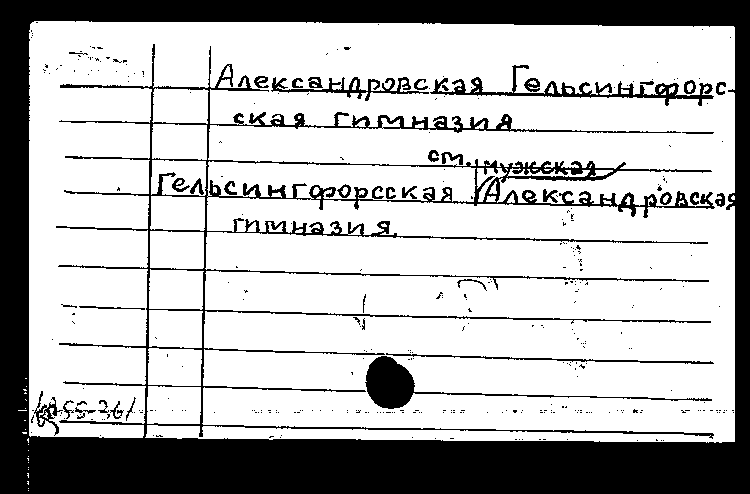 Александровская Гельсингфорс-
ская гимназия
см. мужская
Гельсингфорсская Александровская
гимназия.